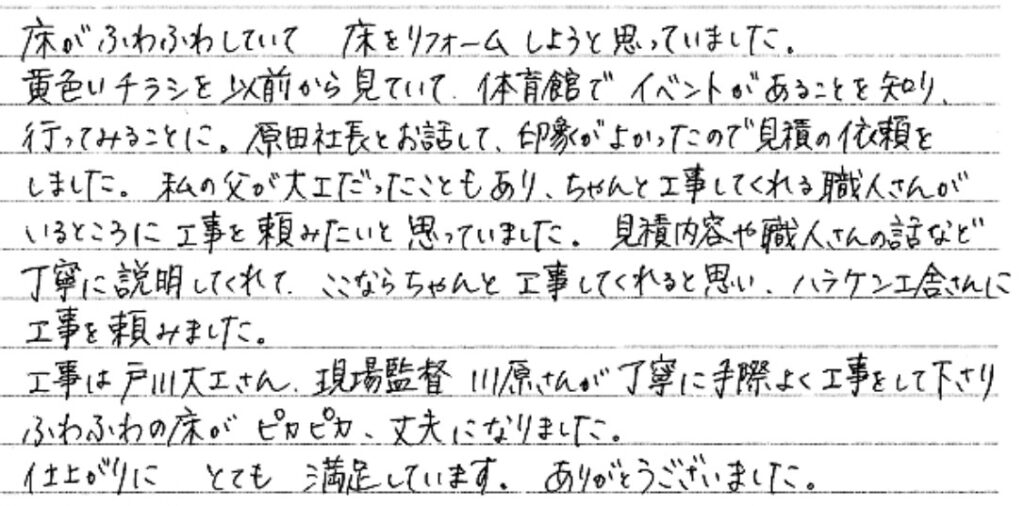 床がふわふわしていて 床をリフォームしようと思っていました。
黄色いチラシを以前から見ていて、体育館でイベントがあることを知り、
行ってみることに。原田社長とお話して、印象がよかったので見積の依頼を
しました。私の父が大工だったこともあり、ちゃんと工事してくれる職人さんが
いるところに工事を頼みたいと思っていました。見積内容や職人さんの話など
丁寧に説明してくれて、ここならちゃんと工事してくれると思い、ハラケン工舎さんに
工事を頼みました。
工事は戸川大工さん、現場監督 川原さんが丁寧に手際よく工事をして下さり
ふわふわの床がピカピカ、丈夫になりました。
仕上がりに とても 満足しています。ありがとうございました。